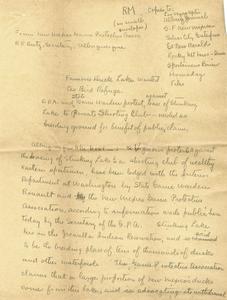 RM
Copies to:
(in small envelopes)
Albuq. Journal
S.F. New Mexican
Silver City Enterprise
El Paso Herald
Rocky Mt. News - Denver
Sportsmen's Review
Hornaday
Files
From New Mexico Game Protective Assn.
Secretary, Albuquerque
Famous Duck Lake Wanted
As Bird Refuge
G.P.A. and Game Warden protest lease of Stinking
Lake to Private Shooting Club - needed as
breeding ground for benefit of public
protests against
the leasing of Stinking Lake to a shooting club of wealthy
eastern sportsmen, have been lodged with the Interior
Department at Washington by State Game Warden
Rouault and the New Mexico Game Protective
Association, according to information made public here
today by the Secretary of the G.P.A. Stinking Lake
lies on the Jicarilla Indian Reservation, and is
to be the breeding place of tens of thousands of ducks
and other waterfowl. The Game Protective Association
claims that a large proportion of New Mexico's ducks
come from this lake, and is advocating its withdrawal